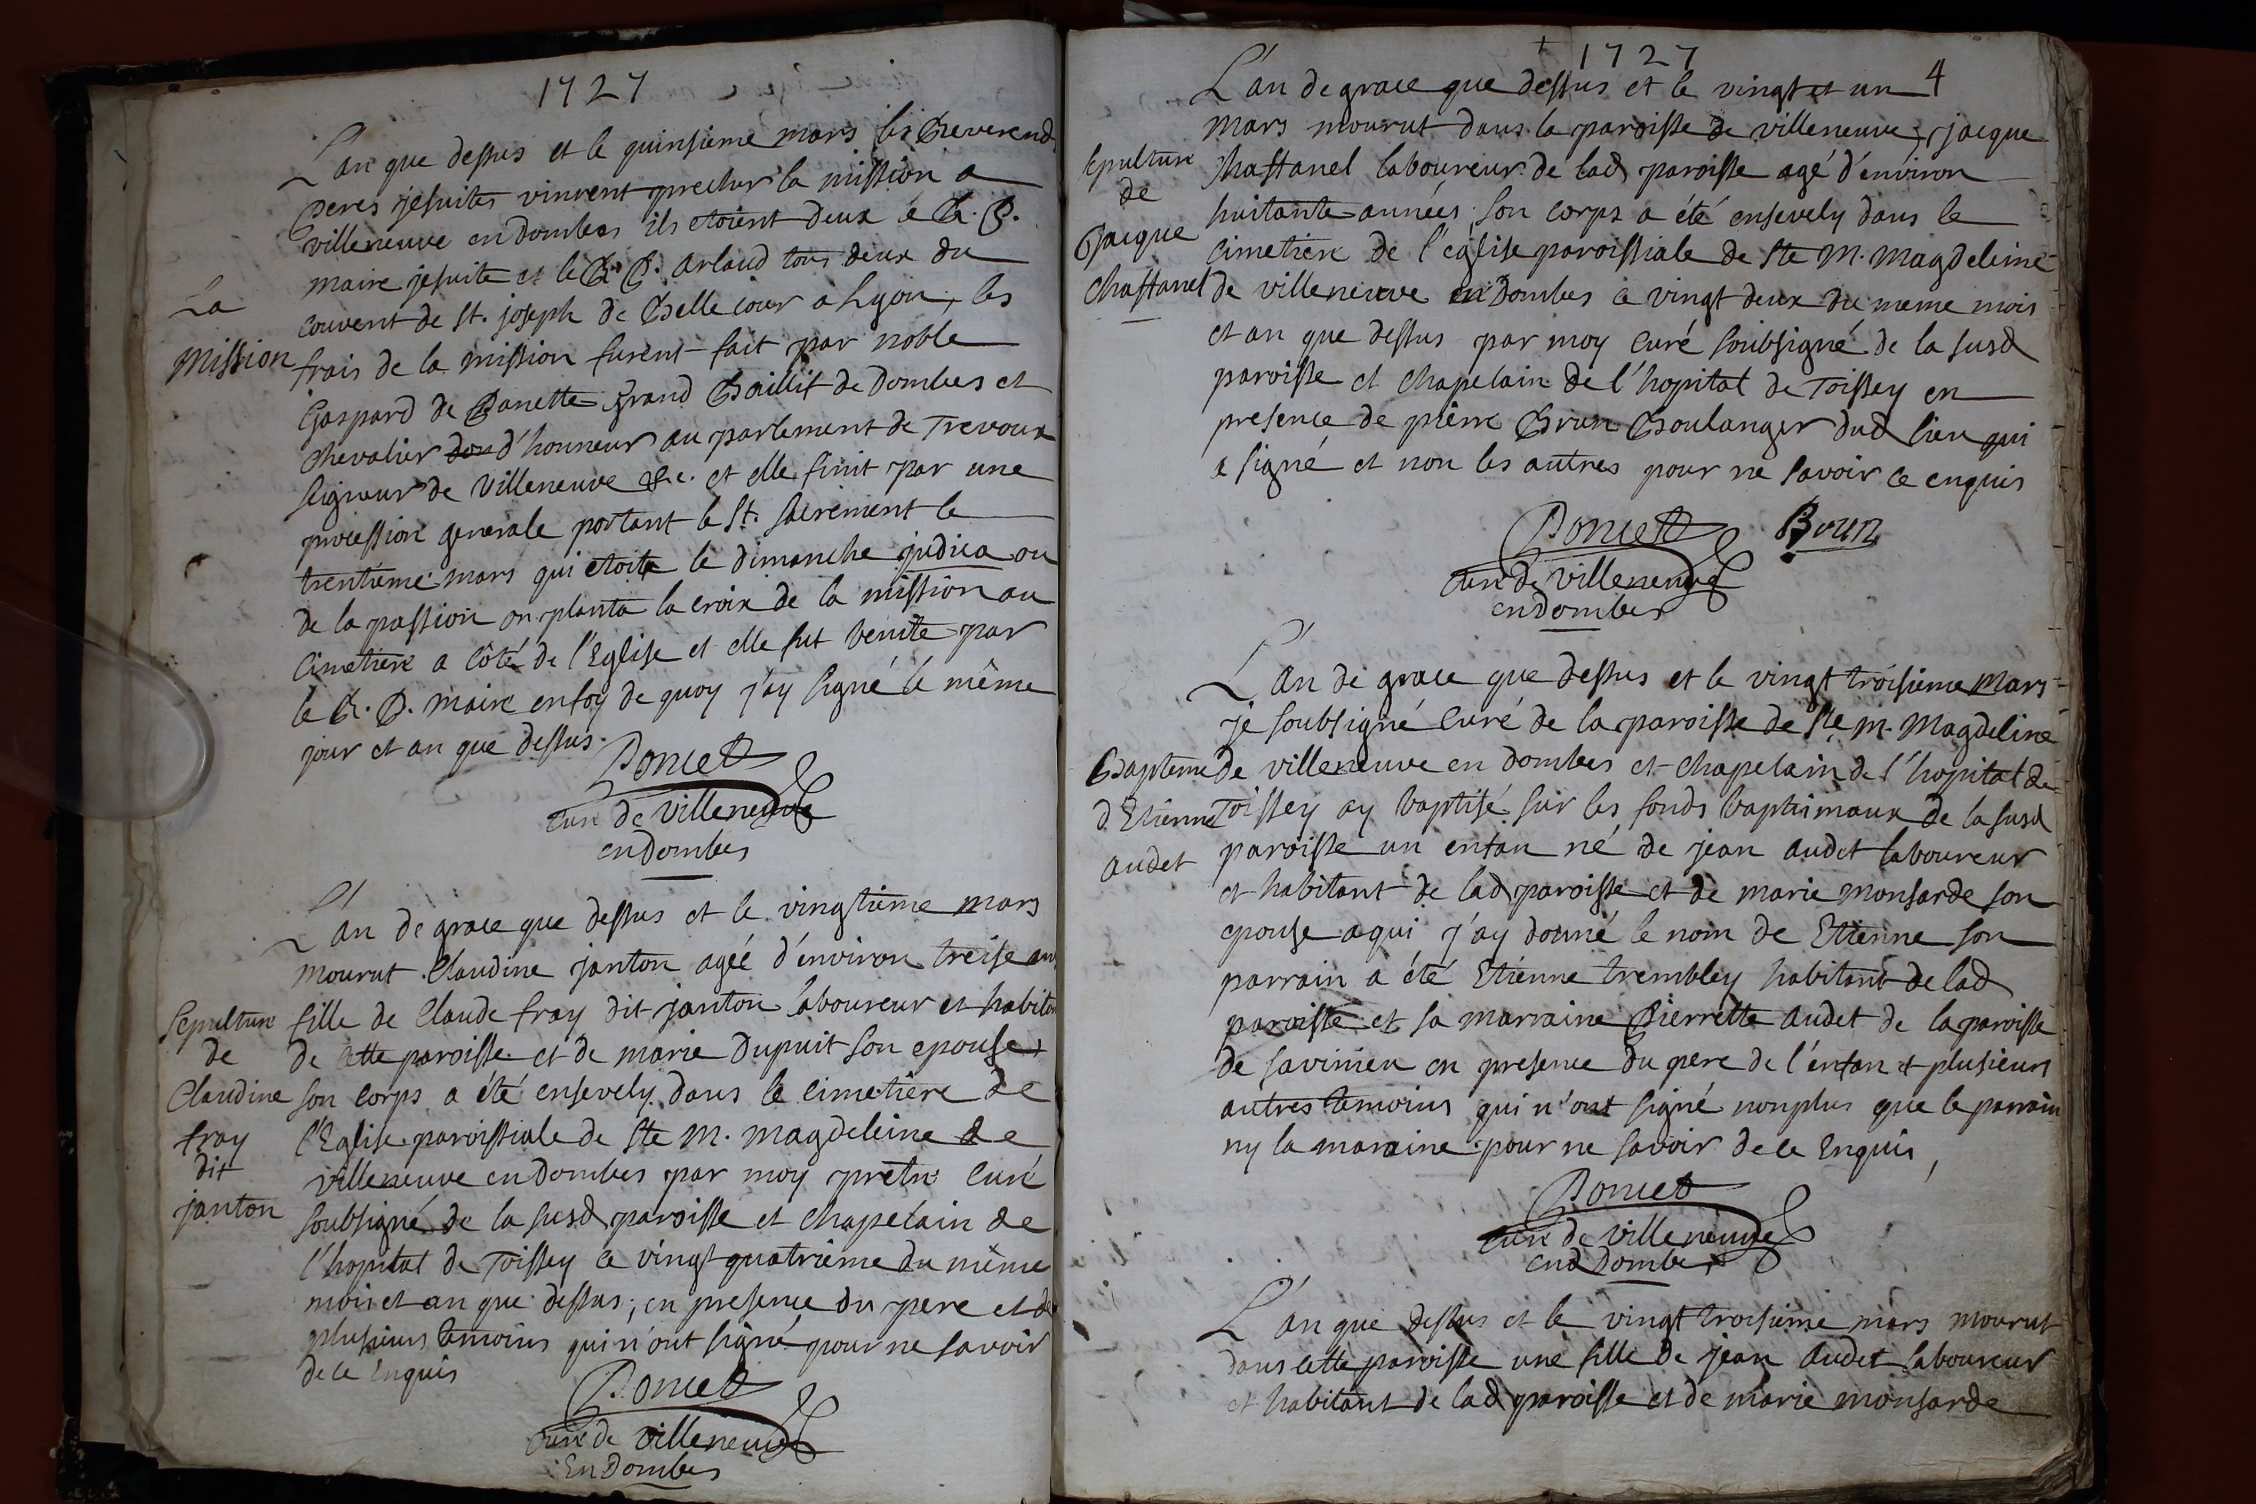 1727
L'an que dessus et le quinsieme mars les Reverend
Peres jesuites vinrent precher la mission a
villeneuve en dombes ils etoient deux le R. P.
maire jesuite et le R. P. Arlaud tous deux du
couvent de st. joseph de Belle cour a Lyon, les
La
Mission
frais de la mission furent fait par noble
Gaspard de Banette grand Baillif de Dombes et
chevalier don d'honneur au parlement de Trevoux
seigneur de Villeneuve &c. et elle finit par une
procession generale portant le St. sacrement le
trentieme mars qui etoit le dimanche judica ou
de la passion on planta la croix de la mission au
Cimetiere a côté de l'Eglise et elle fut benite par
le R. P. maire en foy de quoy j'ay signé le même
jour et an que dessus.
Poncet
curé de villeneuve
en dombes
L'an de grace que dessus et le vingtieme mars
mourut Claudine janton agée d'environ treise ans
Sepulture
de
Claudine
fray
dit
janton
fille de Claude fray dit janton laboureur et habitan
de cette paroisse et de marie Dupuit son epouse,
son corps a été ensevely dans le cimetiere de
l'Eglise paroissiale de Ste M. Magdeleine de
villeneuve en Dombes par moy pretre curé
soubsigné de la susd paroisse et chapelain de
l'hopital de Toissey ce vingt quatrieme du même
mois et an que dessus, en presence du pere et de
plusieurs temoins qui n'ont signé pour ne savoir
de ce Enquis
Poncet
curé de villeneuve
En Dombes
1727
4
L'an de grace que dessus et le vingt et un
mars mourut dans la paroisse de villeneuve, jacque
sepulture
de
Jacque
Chastanel
Chastanel laboureur de lad paroisse agé d'environ
huitante années son corps a été ensevely dans le
cimetiere de l'église paroissiale de Ste M. Magdeleine
de villeneuve en Dombes ce vingt deux du meme mois
et an que dessus par moy curé soubsigné de la susd
paroisse et chapelain de l'hopital de Toissey en
presence de pierre Brun Boulanger dud lieu qui
a signé et non les autres pour ne savoir ce enquis
Poncet Brun
curé de villeneuve
en dombes
L'an de grace que dessus et le vingt troisieme Mars
je soubsigné curé de la paroisse de Ste M. Magdeleine
Bapteme
d'Etienne
audet
de villeneuve en dombes et chapelain de l'hopital de
Toissey ay baptisé sur les fonds baptismaux de la susd
paroisse un enfan né de jean audet laboureur
et habitant de lad paroisse et de marie monsarde son
epouse a qui j'ay donné le nom de Etienne son
parrain a été Etienne trembley habitant de lad
paroisse et sa marraine Pierrette audet de la paroisse
de savinieu en presence du pere de l'enfan et plusieurs
autres temoins qui n'ont signé nonplus que le parrain
ny la maraine pour ne savoir de ce Enquis,
Poncet
curé de villeneuve
en Dombes
L'an que dessus et le vingt troisieme mars mourut
dans cette paroisse une fille de jean Audet laboureur
et habitant de lad paroisse et de marie monsarde